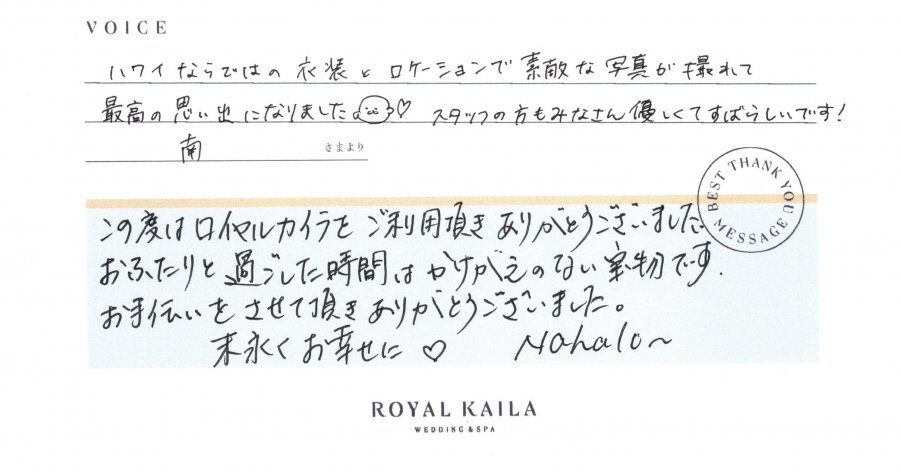 VOICE
ハワイならではの衣装とロケーションで素敵な写真が撮れて
最高の思い出になりました♡ スタッフの方もみなさん優しくてすばらしいです!
南 さまより
BEST THANK YOU MESSAGE
この度はロイヤルカイラをご利用頂きありがとうございました。
おふたりと過ごした時間はかけがえのない宝物です.
お手伝いをさせて頂きありがとうございました。
末永くお幸せに♡ Mahalo〜
ROYAL KAILA
WEDDING & SPA